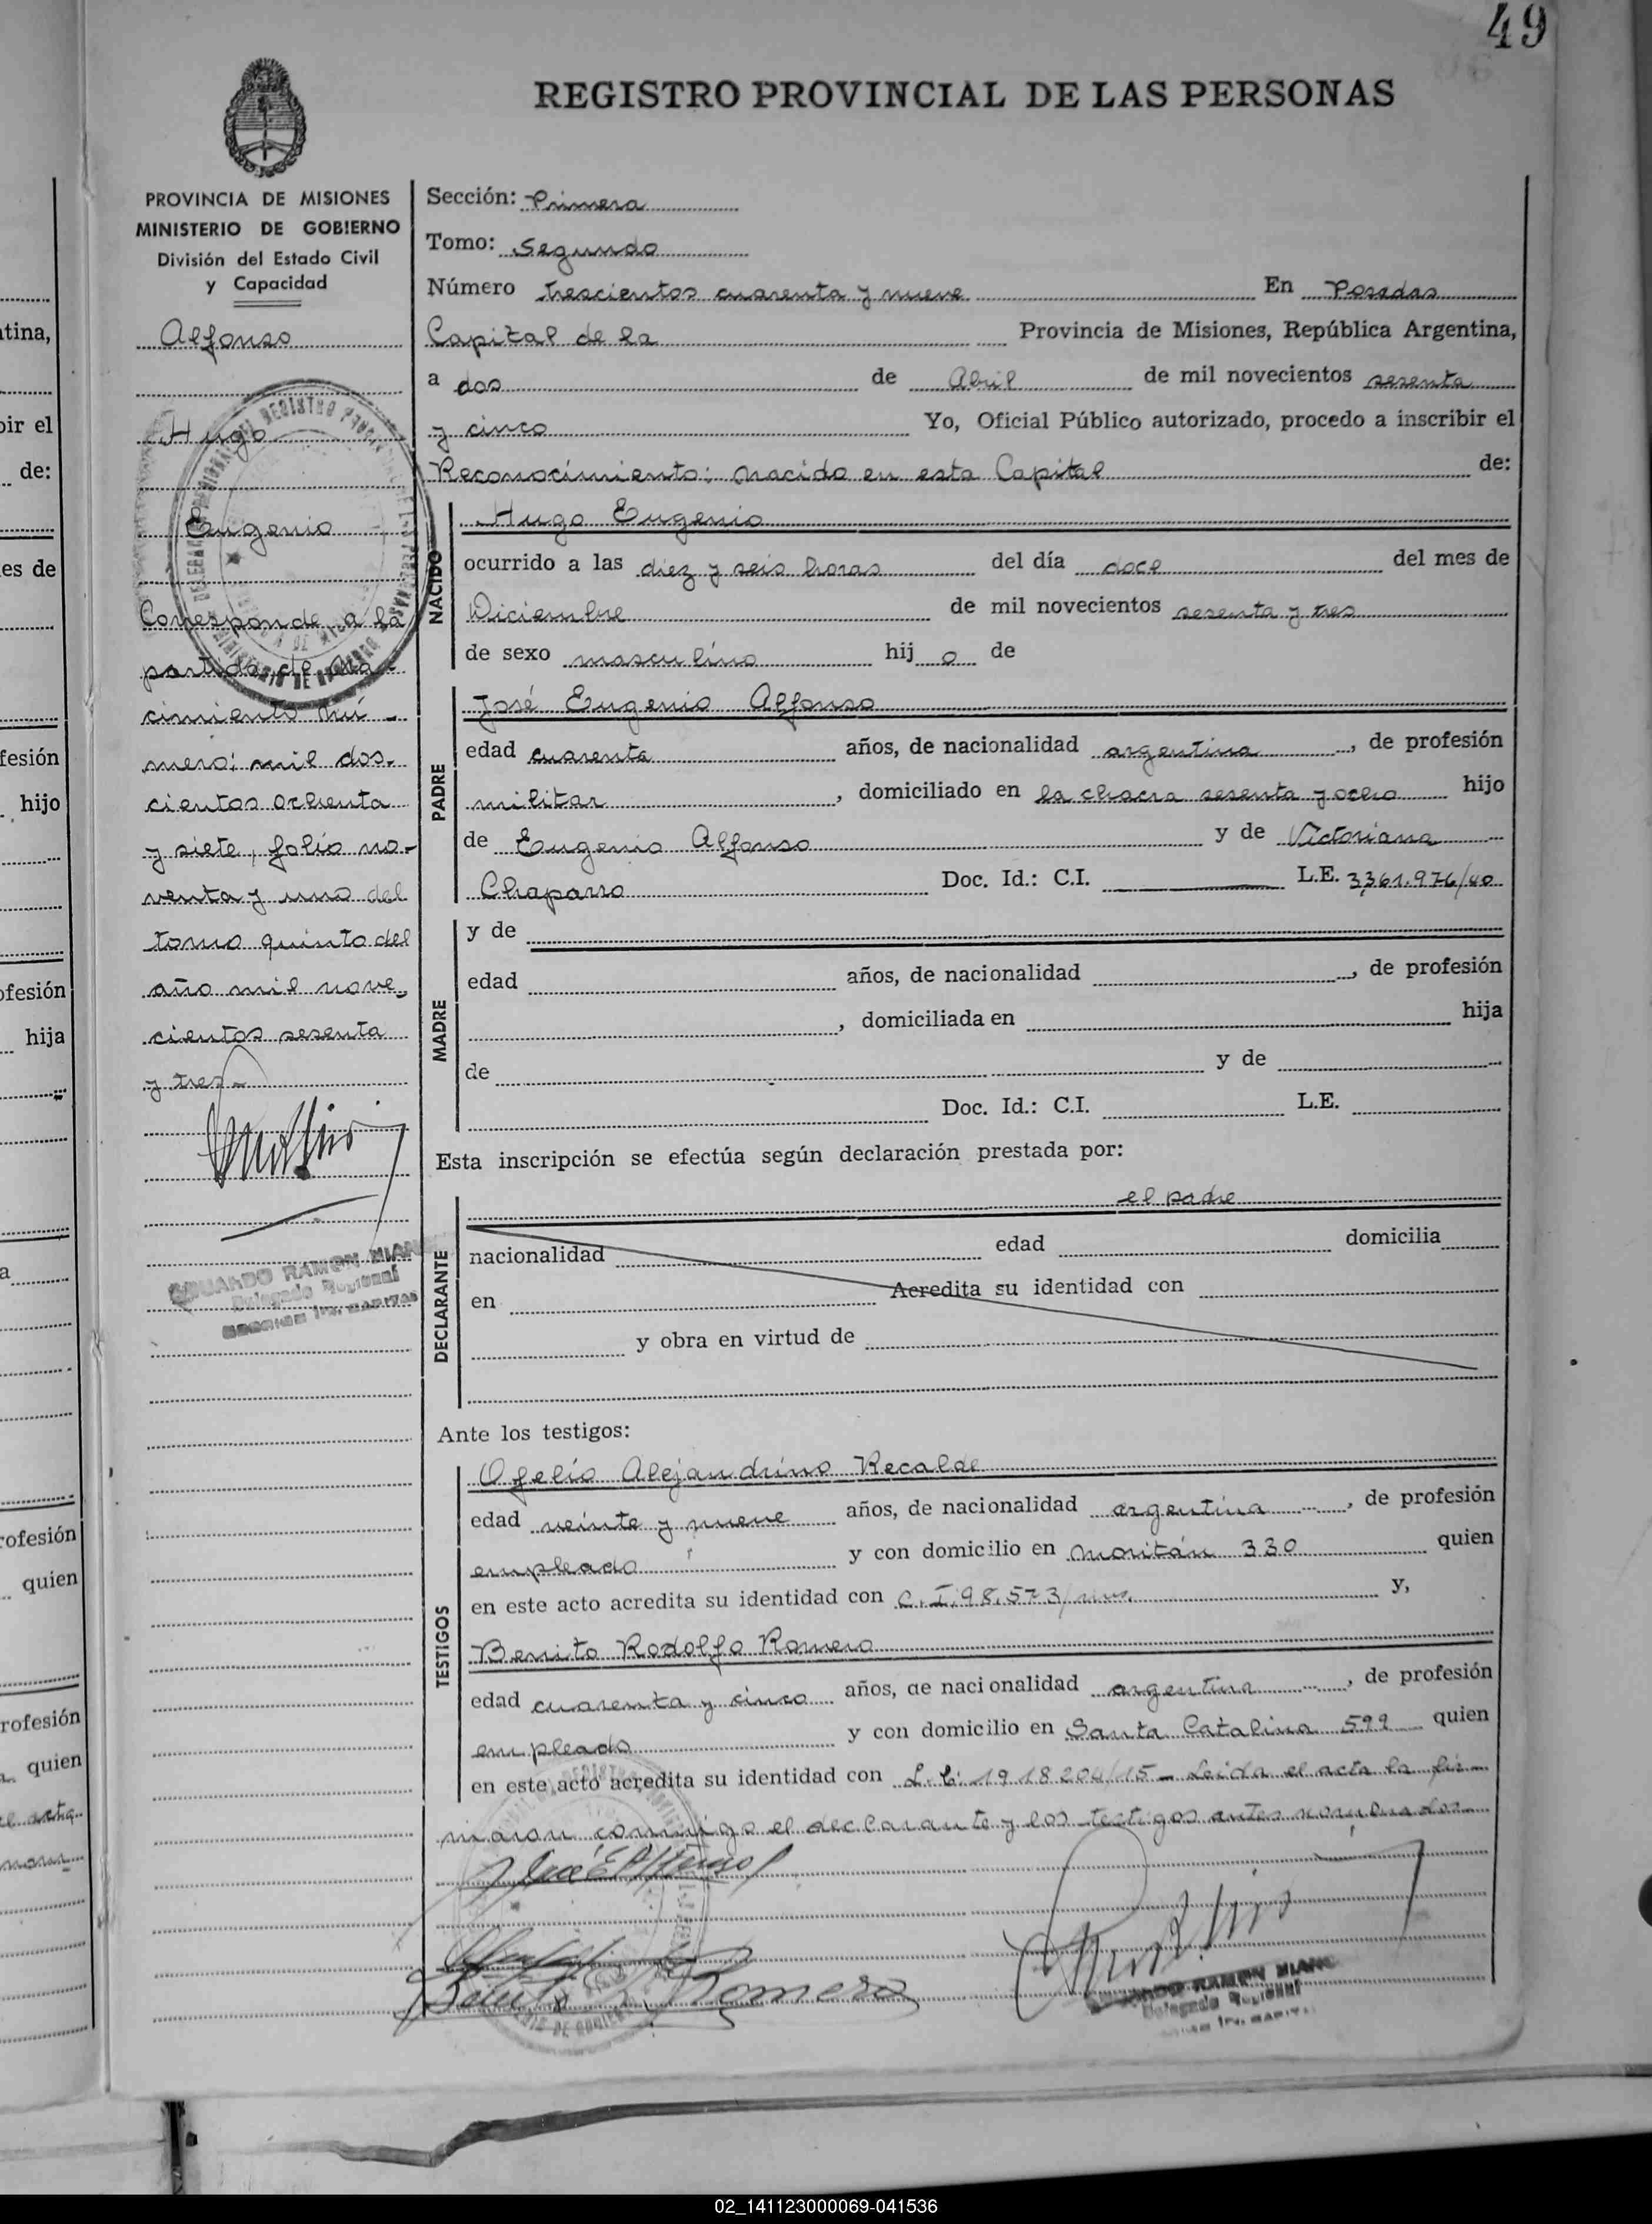 49
REGISTRO PROVINCIAL DE LAS PERSONAS
PROVINCIA DE MISIONES
MINISTERIO DE GOBIERNO
División del Estado Civil
y Capacidad
Alfonso
Hugo
Eugenio
Corresponde a la
partida de na-
cimiento nú-
mero: mil dos-
cientos ochenta
y siete, folio no-
venta y uno del
tomo quinto del
año mil nove-
cientos sesenta
y tres-
EDUARDO RAMON MIANO
Delegado Regional
Sección: Primera
Tomo: Segundo
Número trescientos cuarenta y nueve En Posadas
Capital de la Provincia de Misiones, República Argentina,
a dos de Abril de mil novecientos sesenta
y cinco Yo, Oficial Público autorizado, procedo a inscribir el
Reconocimiento: nacido en esta Capital de:
NACIDO
Hugo Eugenio
ocurrido a las diez y seis horas del día doce del mes de
Diciembre de mil novecientos sesenta y tres
de sexo masculino hij o de
PADRE
José Eugenio Alfonso
edad cuarenta años, de nacionalidad argentina, de profesión
militar, domiciliado en la chacra sesenta y ocho hijo
de Eugenio Alfonso y de Victoriana
Chaparro Doc. Id.: C.I. L.E. 3.361.976/40
MADRE
y de
edad años, de nacionalidad , de profesión
, domiciliada en hija
de y de
Doc. Id.: C.I. L.E.
Esta inscripción se efectúa según declaración prestada por:
DECLARANTE
el padre
nacionalidad edad domicilia
en Acredita su identidad con
y obra en virtud de
Ante los testigos:
TESTIGOS
Ofelio Alejandrino Recalde
edad veinte y nueve años, de nacionalidad argentina, de profesión
empleado y con domicilio en Moritán 330 quien
en este acto acredita su identidad con C.I. 98.573/ y,
Benito Rodolfo Romero
edad cuarenta y cinco años, de nacionalidad argentina, de profesión
empleado y con domicilio en Santa Catalina 599 quien
en este acto acredita su identidad con 1918204/15- Leída el acta la fir-
maron conmigo el declarante y los testigos antes nombrados
José E Alfonso
Romero
EDUARDO RAMON MIANO
Delegado Regional
02_141123000069-041536